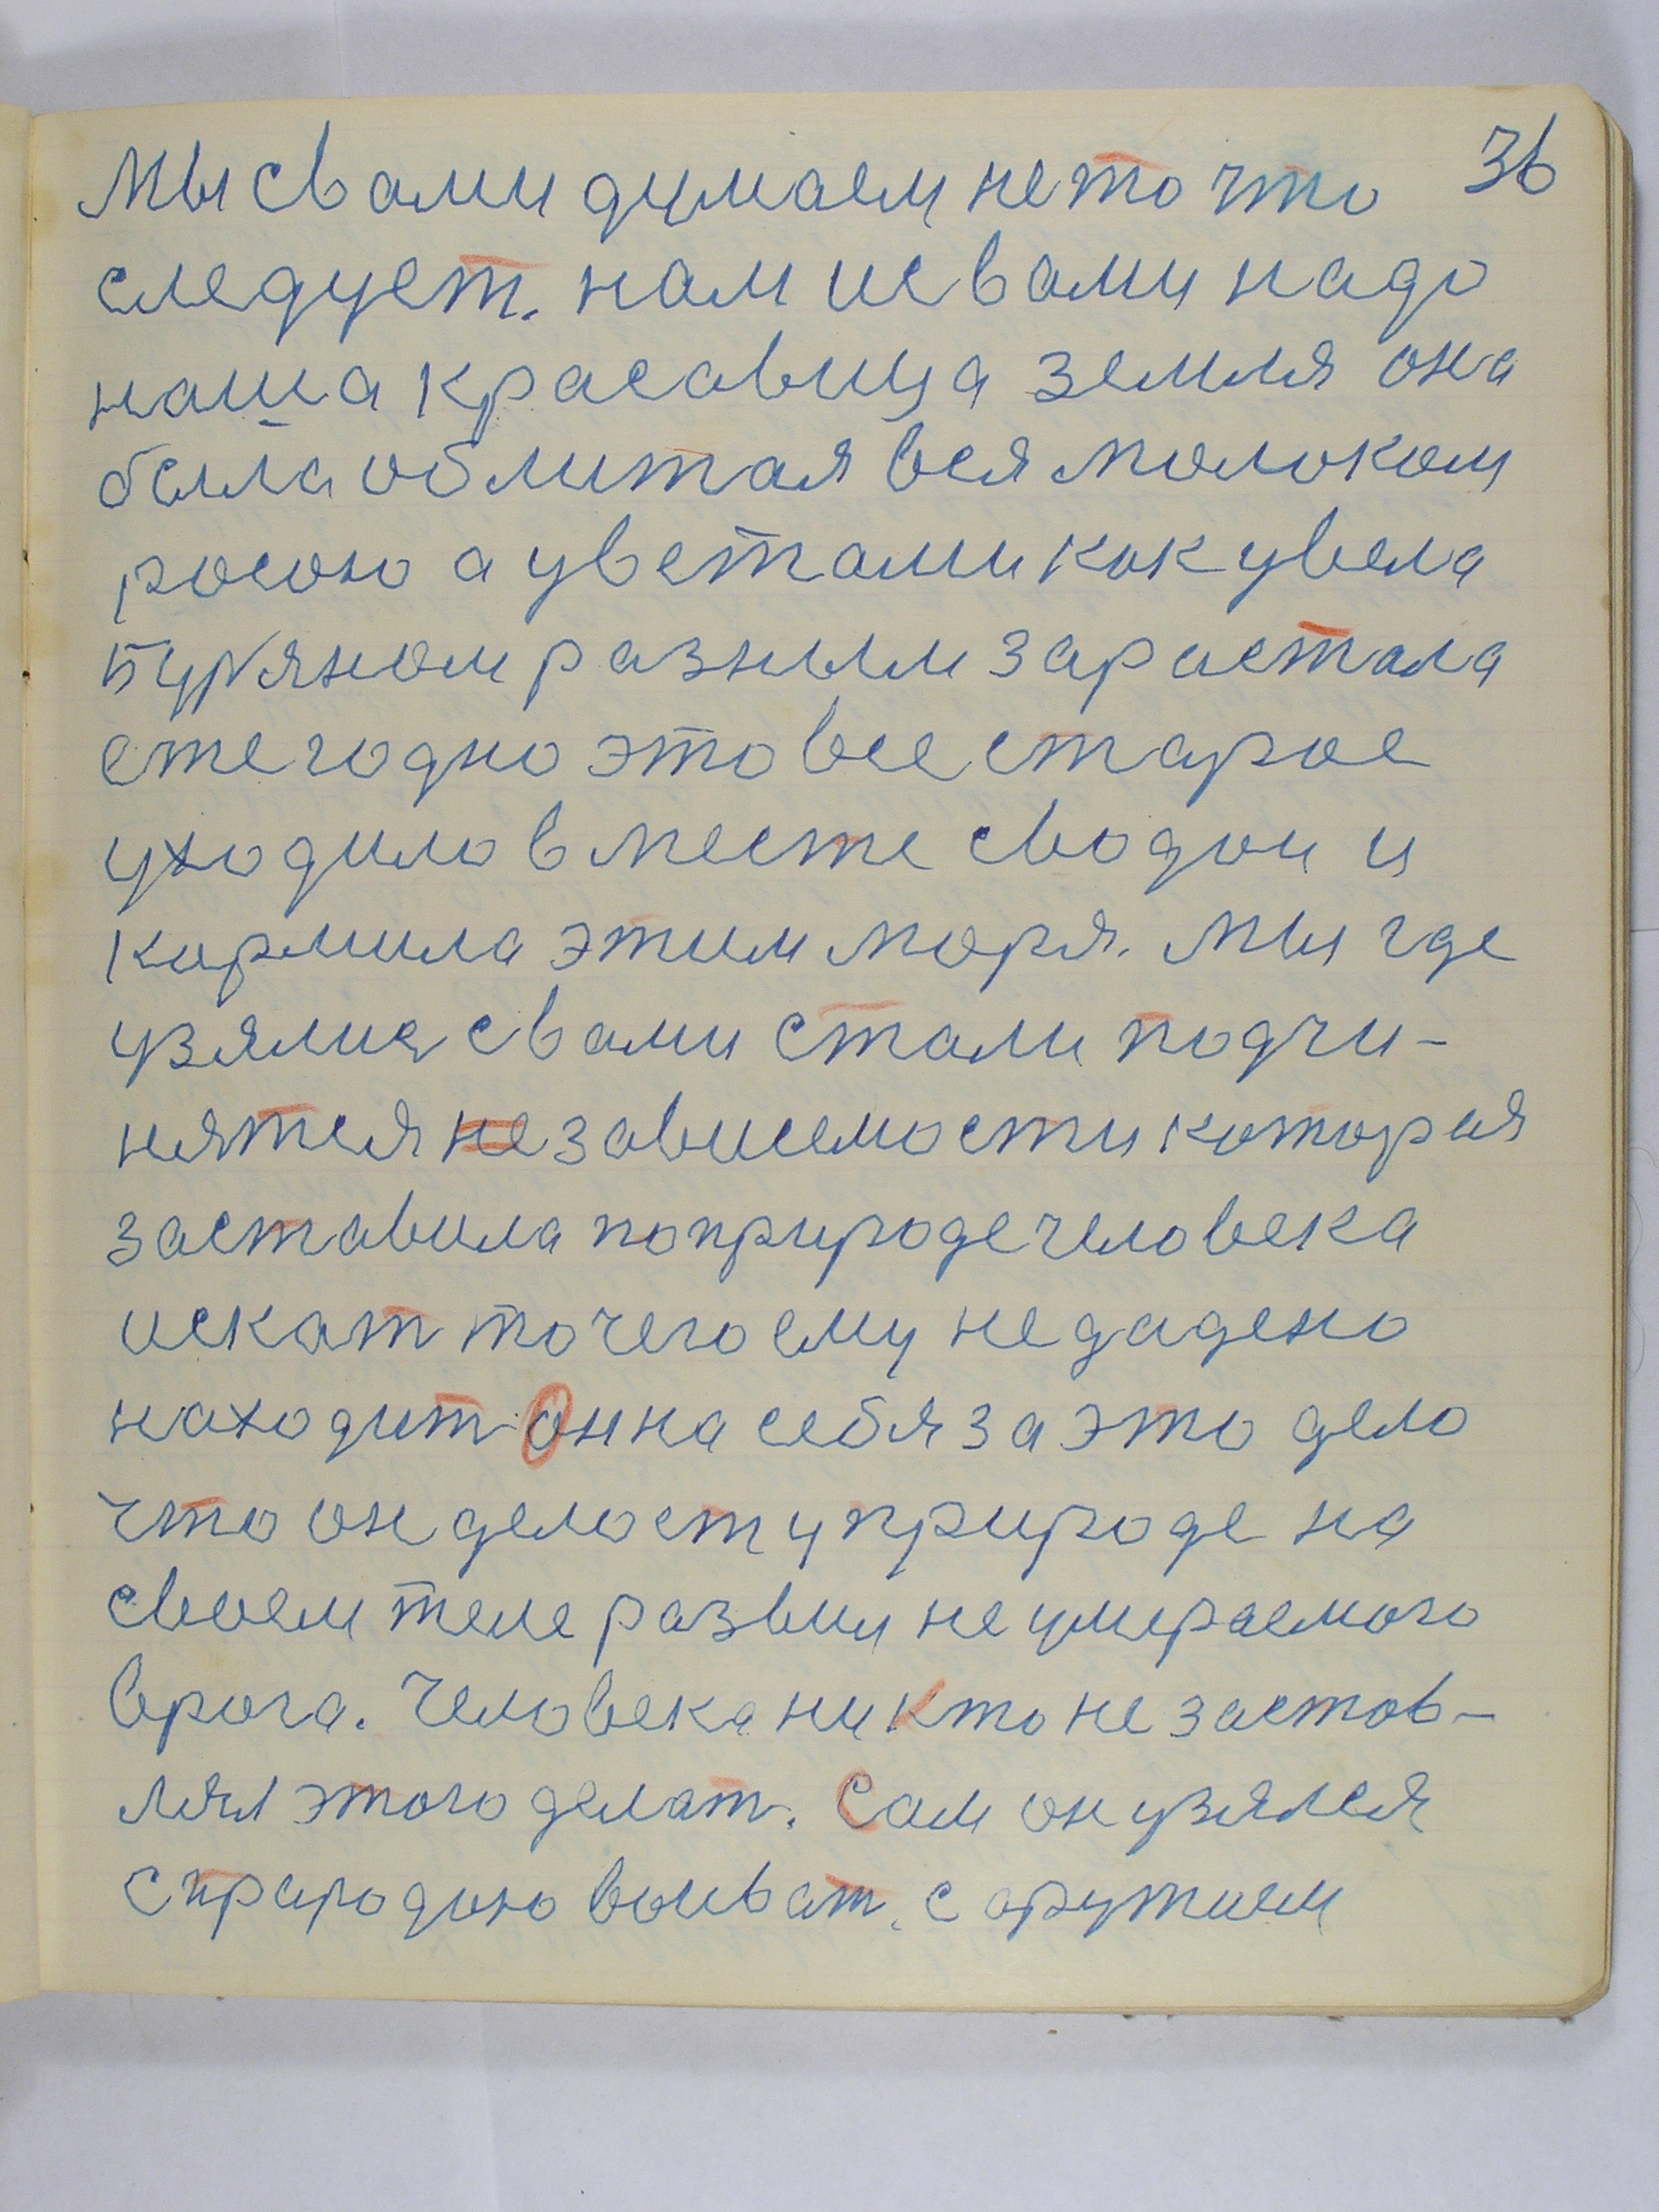 36
Мы свами думаем не то что
следует. нам и свами надо
наша красавица земля она
была облитая вся молоком
росою а цветами как цвела
бурʼяном разным зарастала
ежегодно это все старое
уходило вместе сводой и
кормила этим моря. Мы где
узялис свами стали подчи-
нятся независемости которая
заставила поприроде человека
искат то чего ему не дадено
находит он на себя за это дело
что он делает у природе на
своем теле развил не умераемого
врога. Человека ни кто не застав-
лял этого делат. Сам он узялся
с природою воеват. с аружием